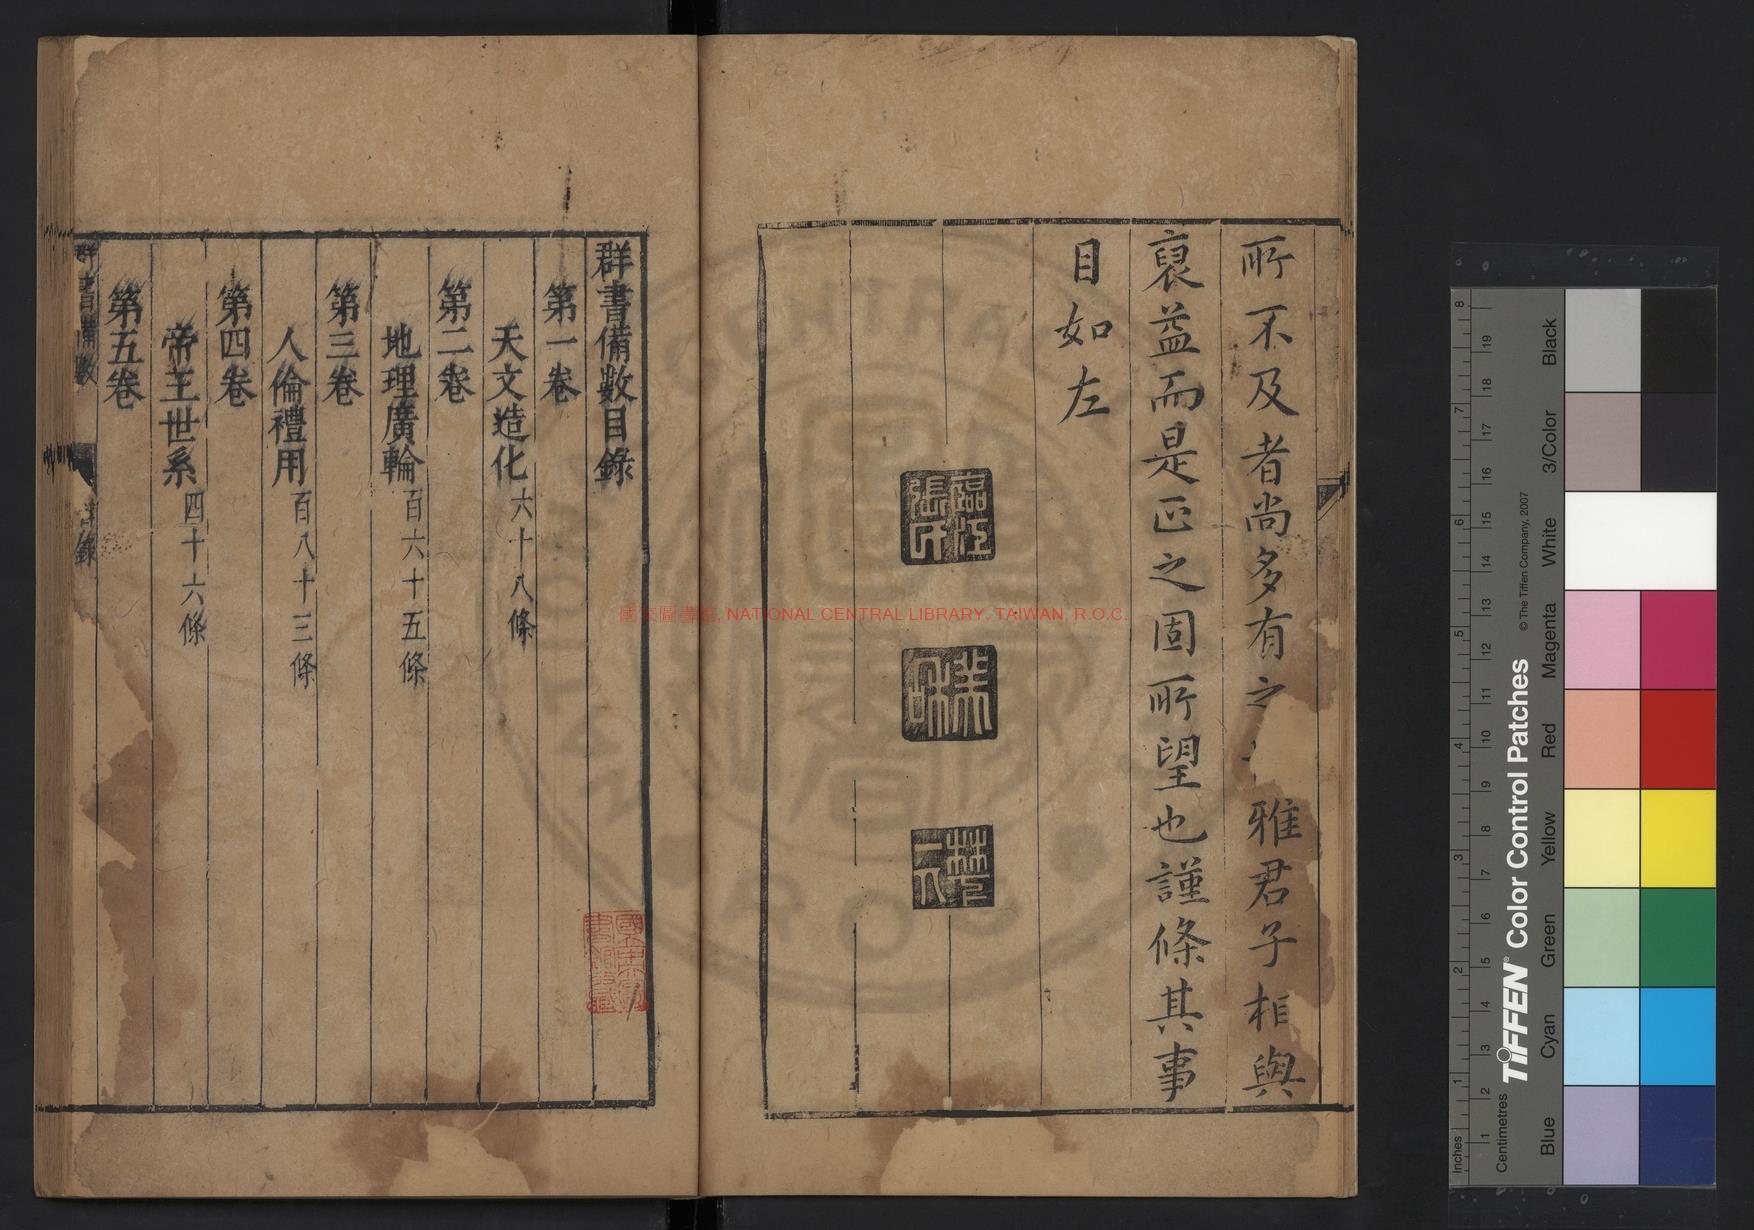 所不及者尚多有之
雅君子相與
裒益而是正之固所望也謹條其事
目如左
臨江
張氏
美和
群書備數目錄
第一卷
天文造化六十八條
第二卷
地理廣輪百六十五條
第三卷
人倫禮用百八十三條
第四卷
帝王世系四十六條
第五卷
群書備數
目錄
國家圖書館, NATIONAL CENTRAL LIBRARY, TAIWAN, R.O.C.
Inches
1 2 3 4 5 6 7 8
Centimetres
1 2 3 4 5 6 7 8 9 10 11 12 13 14 15 16 17 18 19
TIFFEN® Color Control Patches
© The Tiffen Company, 2007
Blue
Cyan
Green
Yellow
Red
Magenta
White
3/Color
Black